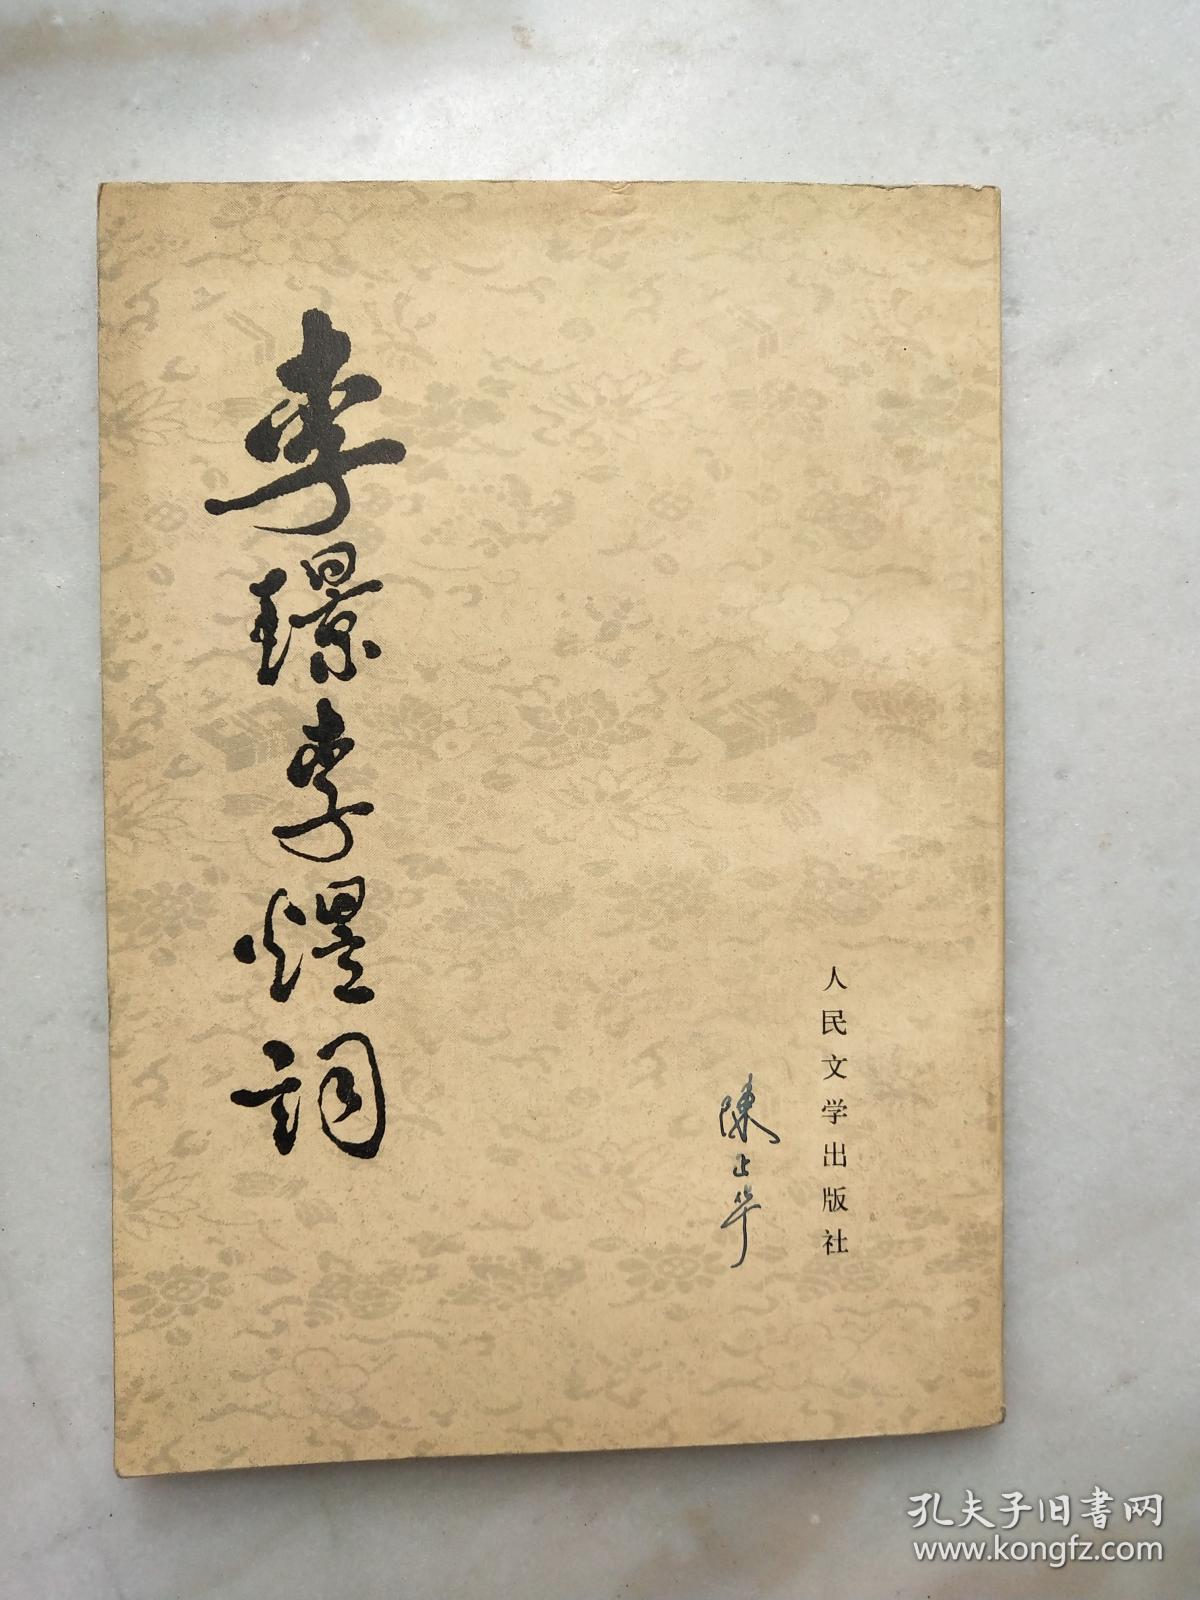 李璟李煜詞
人民文学出版社
陳上华
孔夫子旧书网
www.kongfz.com